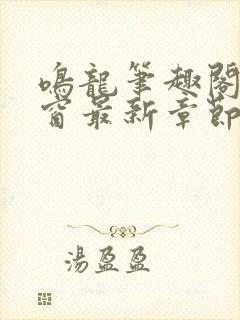 鳴龍筆趣閣
窗最新章節
湯盈盈